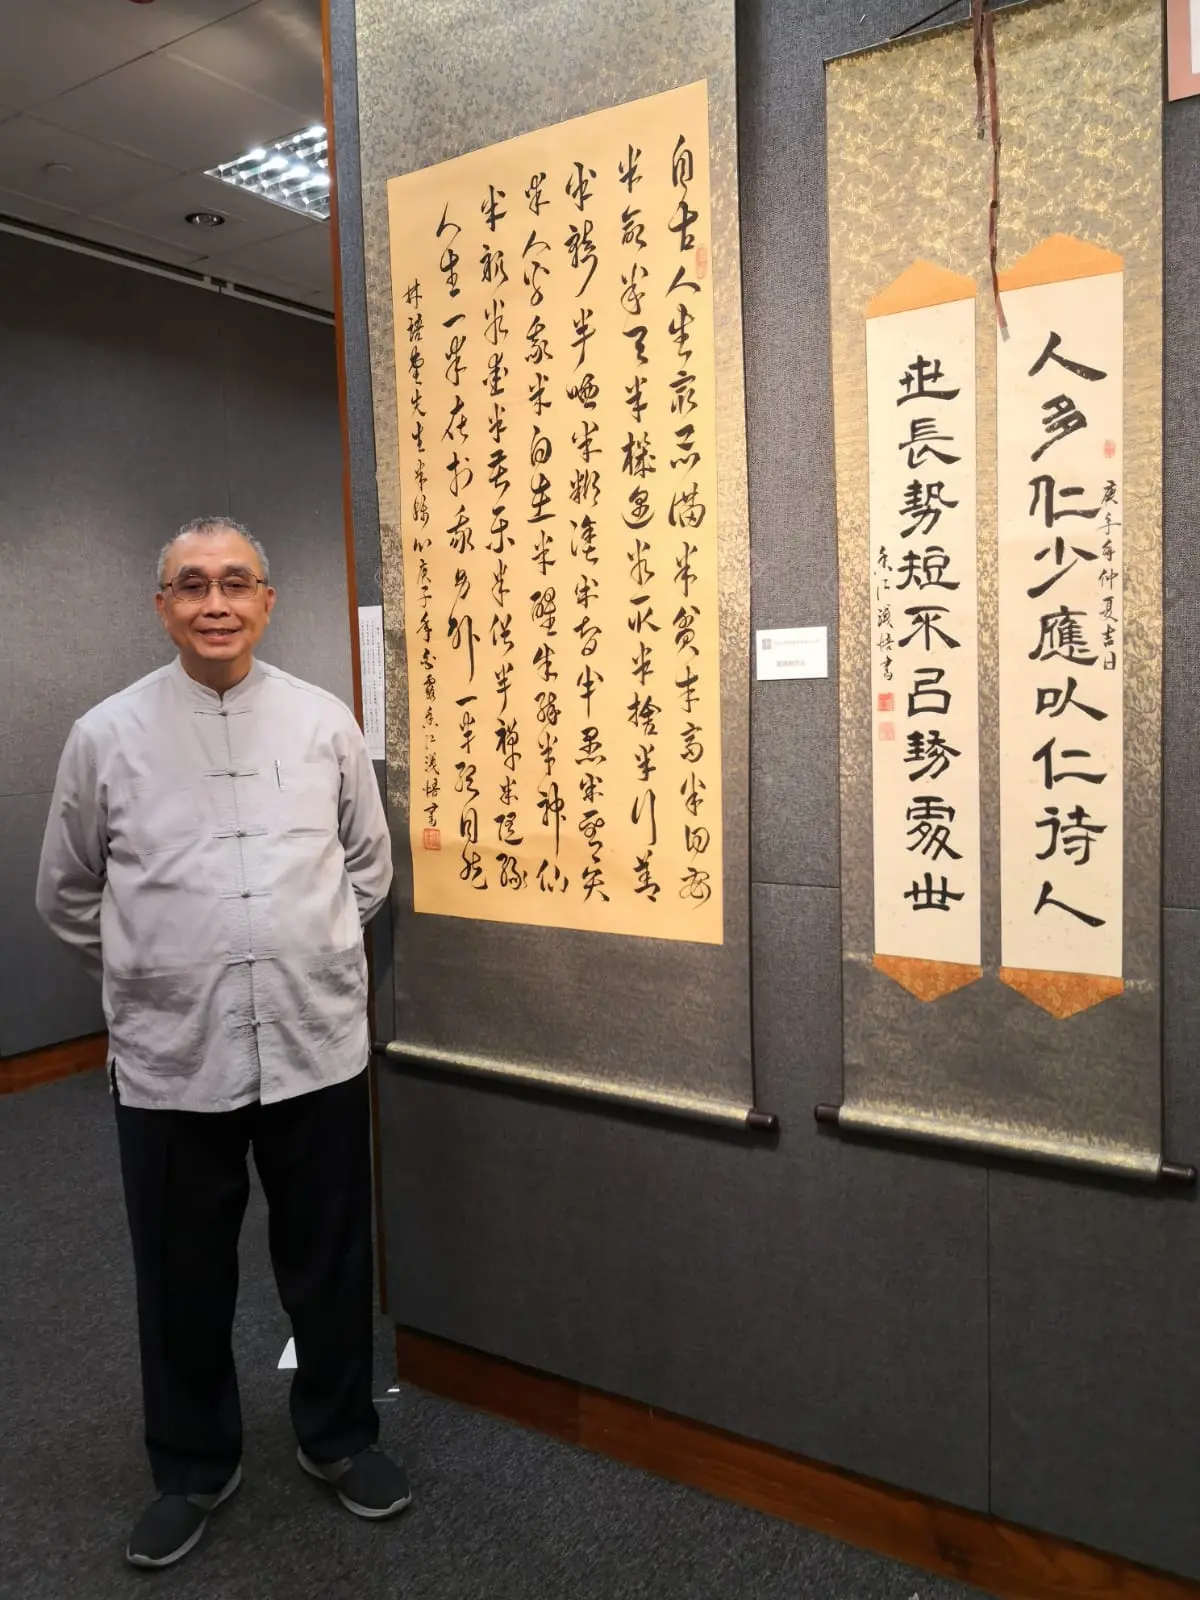 人多仁少應以仁待人
庚子年仲夏吉日
世長勢短不㠯勢處世
香江淺悟書
自古人生最忌滿半貧半富半自安
半命半天半機遇半取半捨半行善
半聾半啞半糊塗半智半愚半聖賢
半人半我半自在半醒半醉半神仙
半親半愛半苦樂半俗半禪半隨緣
人生一半在於我另外一半聽自然
林語堂先生半 庚子年白露香江淺悟書